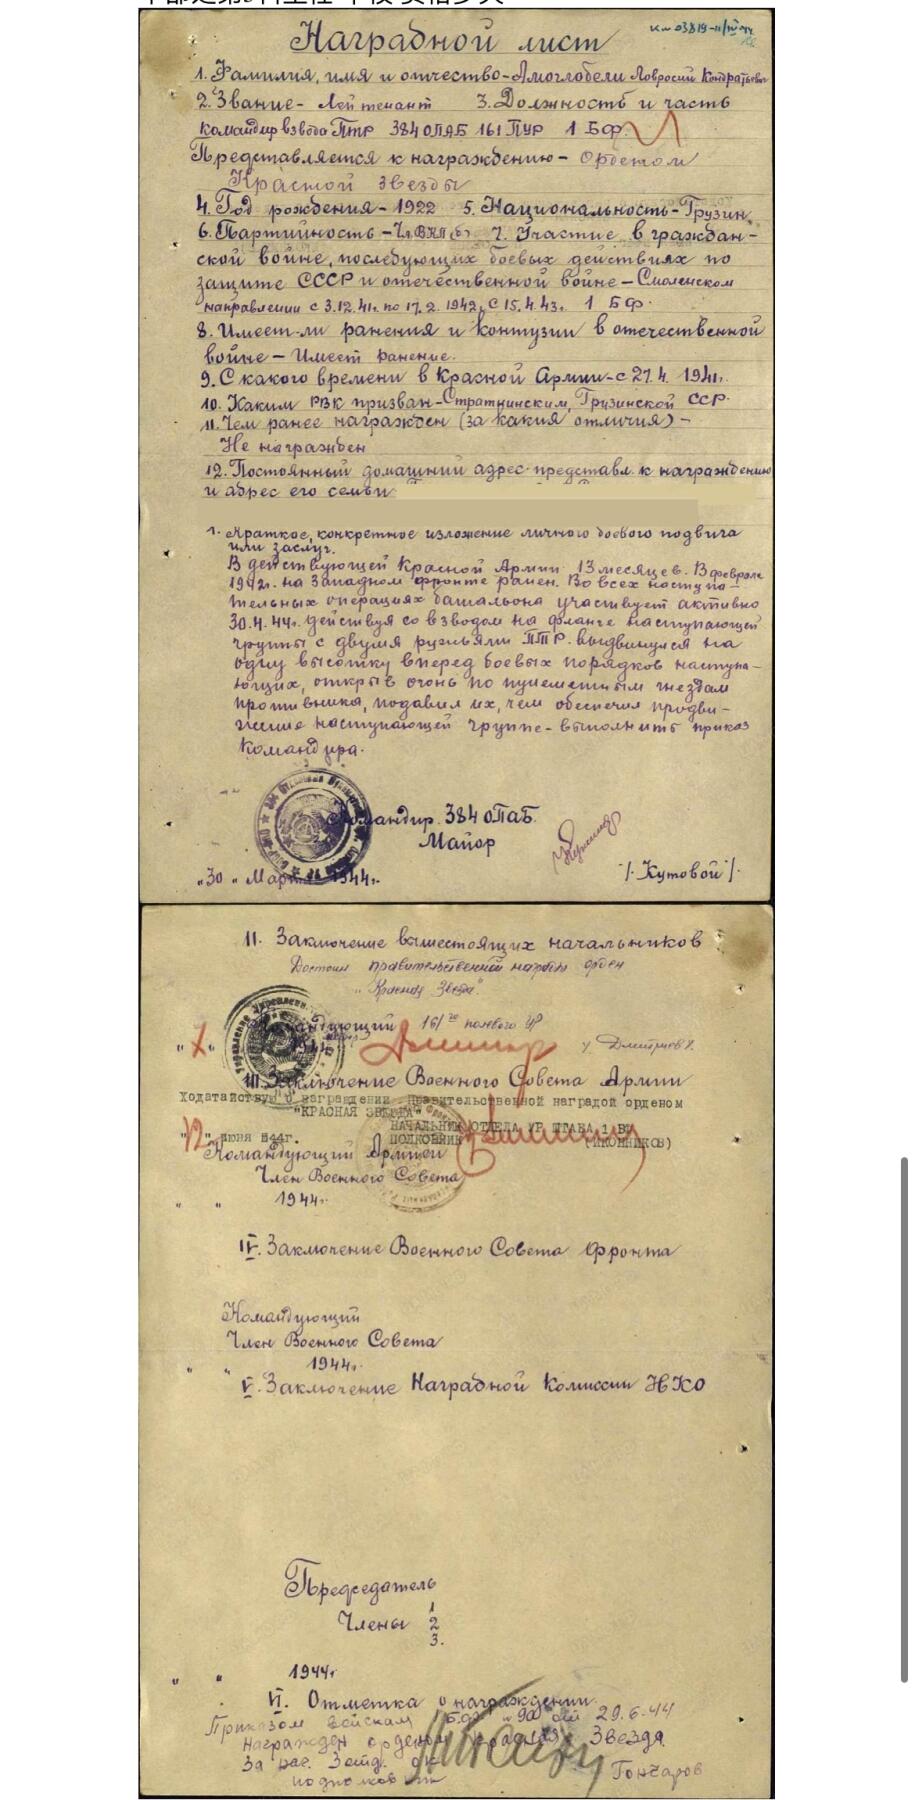 Наградной лист
1. Фамилия, имя и отчество - Амоглобели Ловросий Кондратьевич
2. Звание - Лейтенант 3. Должность и часть
командир взвода ПТР 384 ОПАБ 161 ПУР 1 БФ.
Представляется к награждению - Орденом
Красной звезды
4. Год рождения - 1922 5. Национальность - Грузин
6. Партийность - Чл. ВКП(б) 7. Участие в граждан-
ской войне, последующих боевых действиях по
защите СССР и отечественной войне - Смоленском
направлении с 3.12.41г. по 17.2.1942г. С 15.4.43г. 1 БФ.
8. Имеет-ли ранения и контузии в отечественной
войне - Имеет ранение.
9. С какого времени в Красной Армии - с 27.4.1941г.
10. Каким РВК призван - Грузинской ССР.
11. Чем ранее награжден (за какия отличия) -
Не награжден
12. Постоянный домашний адрес представл. к награждению
и адрес его семьи
1. Краткое, конкретное изложение личного боевого подвига
или заслуг.
В действующей Красной Армии 13 месяцев. В феврале
1942г. на Западном фронте ранен. Во всех наступа-
тельных операциях батальона участвует активно
30.4.44г. действуя со взводом на фланге наступающей
группы с двумя ружьями ПТР. выдвинулся на
одну высотку вперед боевых порядков наступа-
ющих, открыв огонь по пулеметным гнездам
противника, подавил их, чем обеспечил продви-
жение наступающей группе - выполнить приказ
Командира.
Командир 384 ОПАБ
Майор
/. Кутовой /.
"30" Марта 1944г.
II. Заключение вышестоящих начальников
Достоин правительственной награды орден
"Красная Звезда".
Командующий 161 го полевого УР
"7" 1944г. / Дмитриев /.
III. Заключение Военного Совета Армии
Ходатайствую о награждении правительственной наградой орденом
"КРАСНАЯ ЗВЕЗДА"
НАЧАЛЬНИК ОТДЕЛА УР ШТАБА 1 БФ
"12" июня 1944г. ПОЛКОВНИК (ИКОННИКОВ)
Командующий Армией
Член Военного Совета
" " 1944г.
IV. Заключение Военного Совета фронта
Командующий
Член Военного Совета
" " 1944г.
V. Заключение Наградной Комиссии НКО
Председатель
Члены 1
2
3.
" " 1944г
VI. Отметка о награждении
Приказом войскам 29.6.44
награжден орденом Красная Звезда
подполковник Гончаров